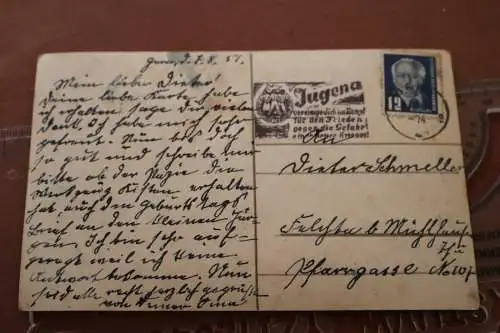 Gera, d. 7. 8. 51.
Mein lieber Dieter!
Deine liebe Karte habe
ich erhalten sage dir vielen
Dank, ich habe mich sehr
gefreut. Nun bis doch
so gut und schreibe mir
bitte ob der Papie den
Werkzeug Kasten erhalten
hat auch den Geburtstags
Brief an den kleinen Jür
gen. Ich bin sehr auf-
geregt weil ich keine
Antwort bekomme. Nun
seid alle recht herzlich gegrüßt
von Deiner Oma
Jugend
vereinige dich im Kampf
für den Frieden
gegen die Gefahr
eines neuen Krieges!
12
An
Dieter Schmeller
Felchta b Mühlhausen
Thü
Pfarrgasse No 107